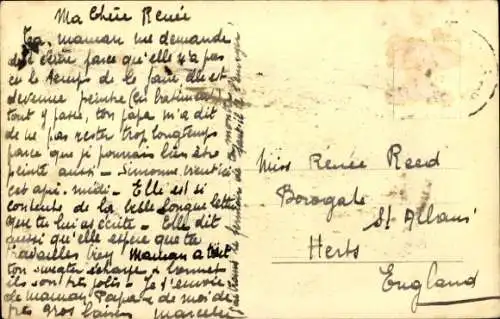 Ma Chère Renée
Ta maman me demande
de t'écrire parce qu'elle n'a pas
eu le temps de le faire elle est
devenue peintre (en batiment)
tout y passe, ton papa m'a dit
de ne pas rester trop longtemps
parce que je pourrais bien être
peinte aussi - Simonne vient ici
cet après-midi - Elle est si
contente de la belle longue lettre
que tu lui as écrite - Elle dit
aussi qu'elle espère que tu
travailles bien Maman a fait
ton sweater écharpe & bonnet
ils sont très jolis - Je t'envoie
de maman Papa & de moi de
très gros baisers Marcelle
Miss Renée Reed
Borogate
St Albans
Herts
England